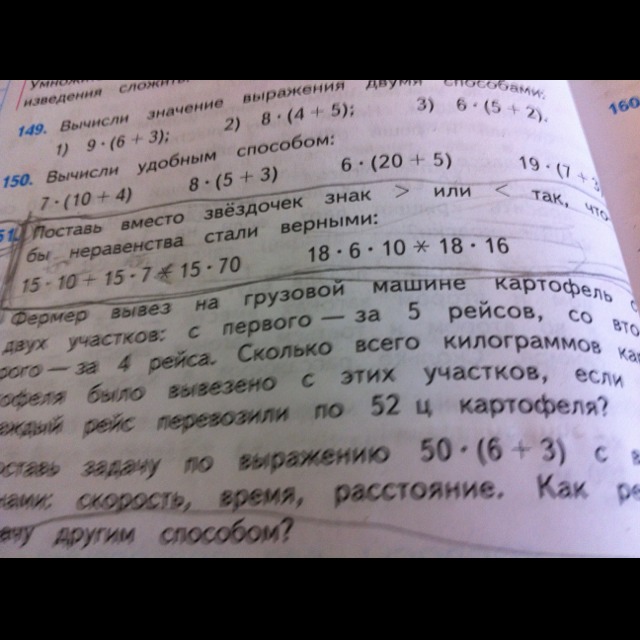 изведения сложить
149. Вычисли значение выражения двумя способами:
1) 9·(6 + 3); 2) 8·(4 + 5); 3) 6·(5 + 2),
150. Вычисли удобным способом:
7·(10 + 4) 8·(5 + 3) 6·(20 + 5) 19·(7 + 3
160
51. Поставь вместо звёздочек знак > или < так, что
бы неравенства стали верными:
15·10 + 15·7 * 15·70 18·6·10 * 18·16
Фермер вывез на грузовой машине картофель с
двух участков: с первого — за 5 рейсов, со вто
рого — за 4 рейса. Сколько всего килограммов кар
офеля было вывезено с этих участков, если
аждый рейс перевозили по 52 ц картофеля?
оставь задачу по выражению 50·(6 + 3) с в
нами: скорость, время, расстояние. Как ре
ачу другим способом?